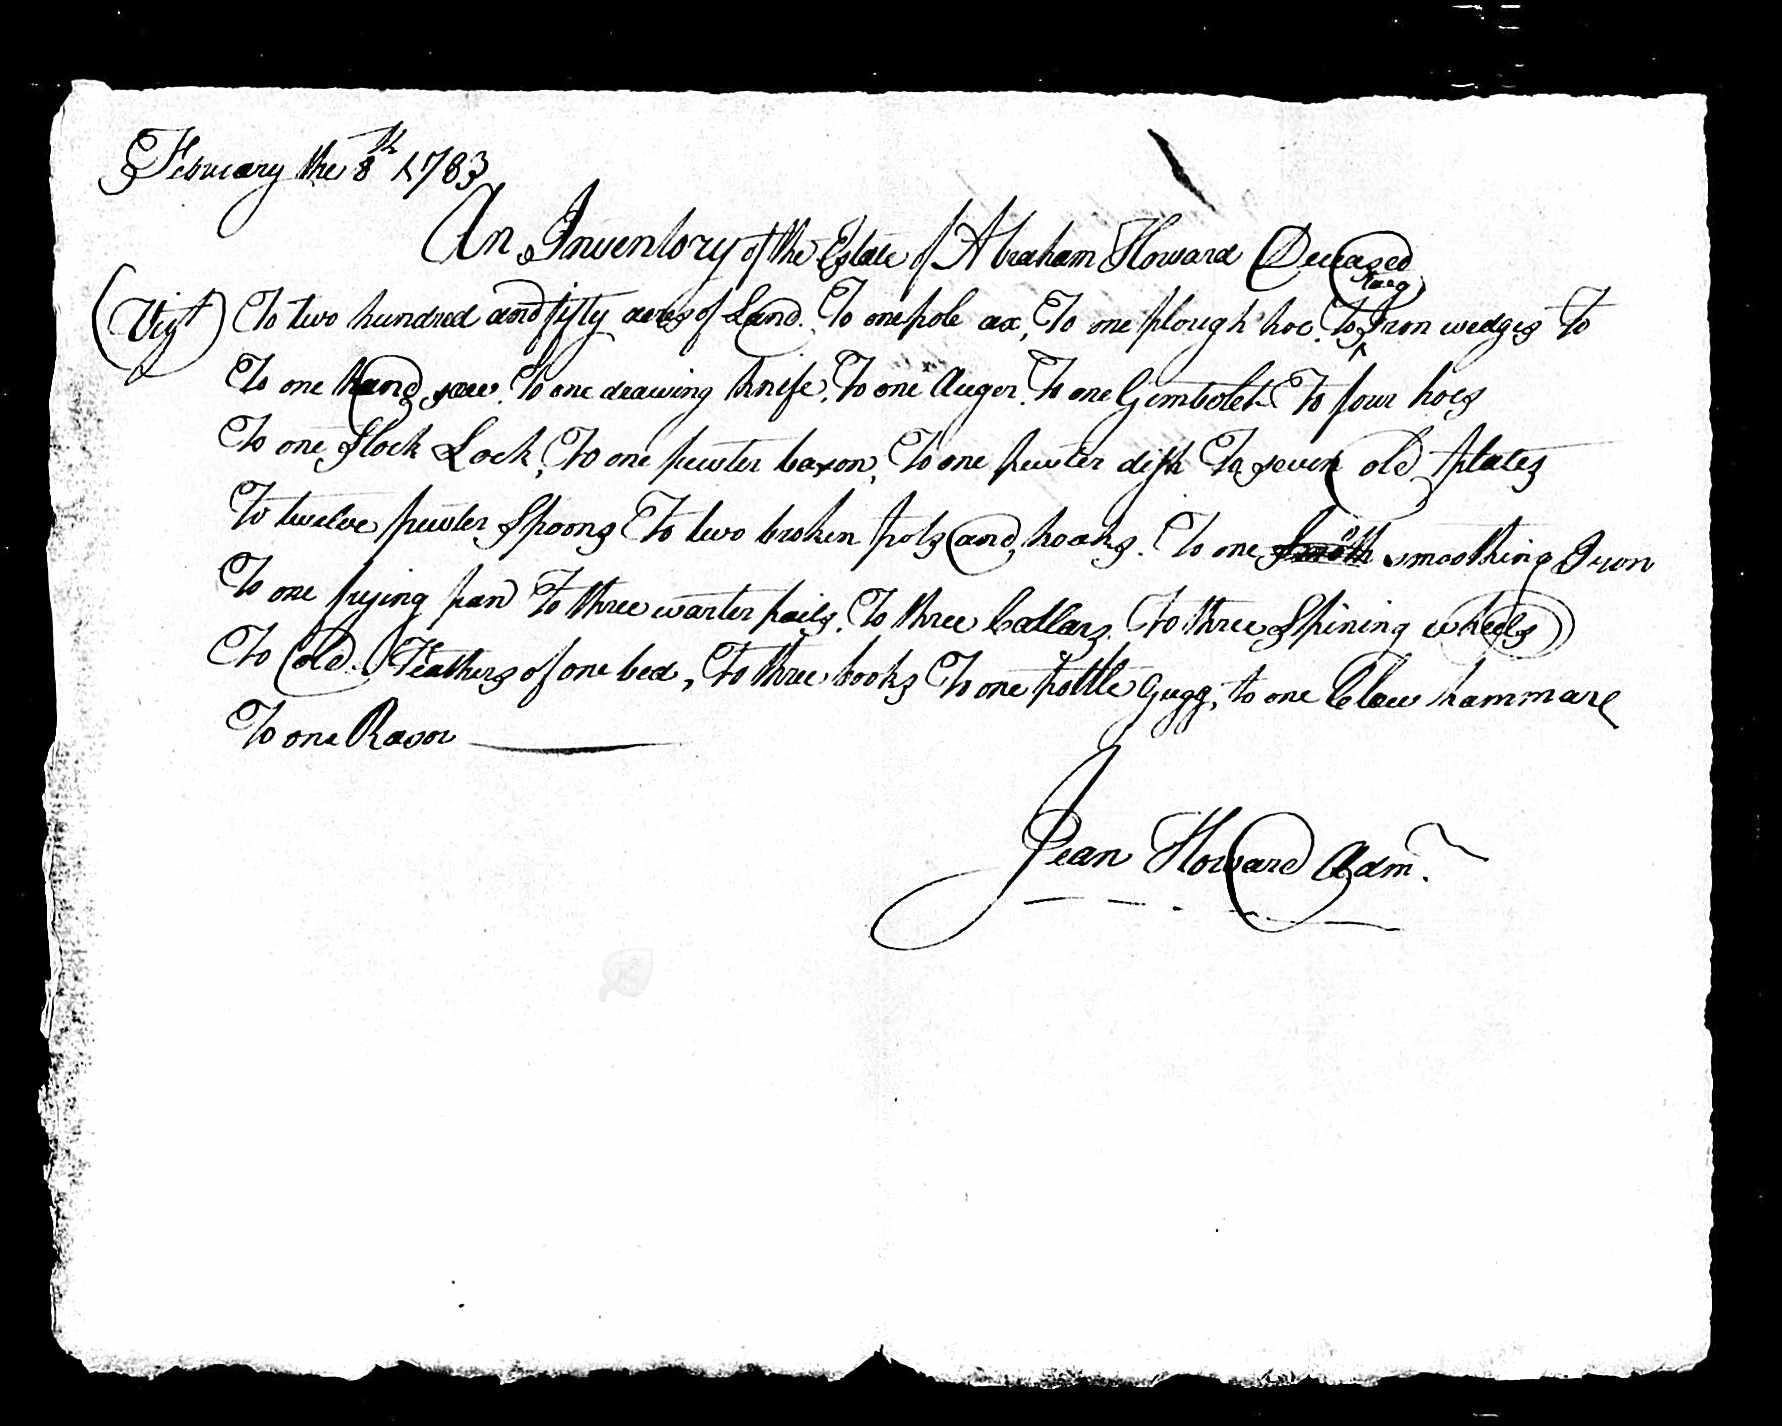 February the 8th 1783
An Inventory of the Estate of Abraham Howard Deceased
(Vizt) To two hundred and fifty acres of Land. To one pole ax, To one plough hoe. To Iron wedges To
To one hand saw. To one drawing knife, To one Auger. To one Gimbolet To four hoes
To one Stock Lock, To one pewter bason, To one pewter dish To seven old plates
To twelve pewter Spoons To two broken pots and hooks. To one Smoth smoothing Iron
To one frying pan To three warter pails. To three Cattars. To three Spining wheels
To old Feathers of one bed, To three books To one pottle Gugg, to one Claw hammare
To one Rasor
Jean Howard Admr.